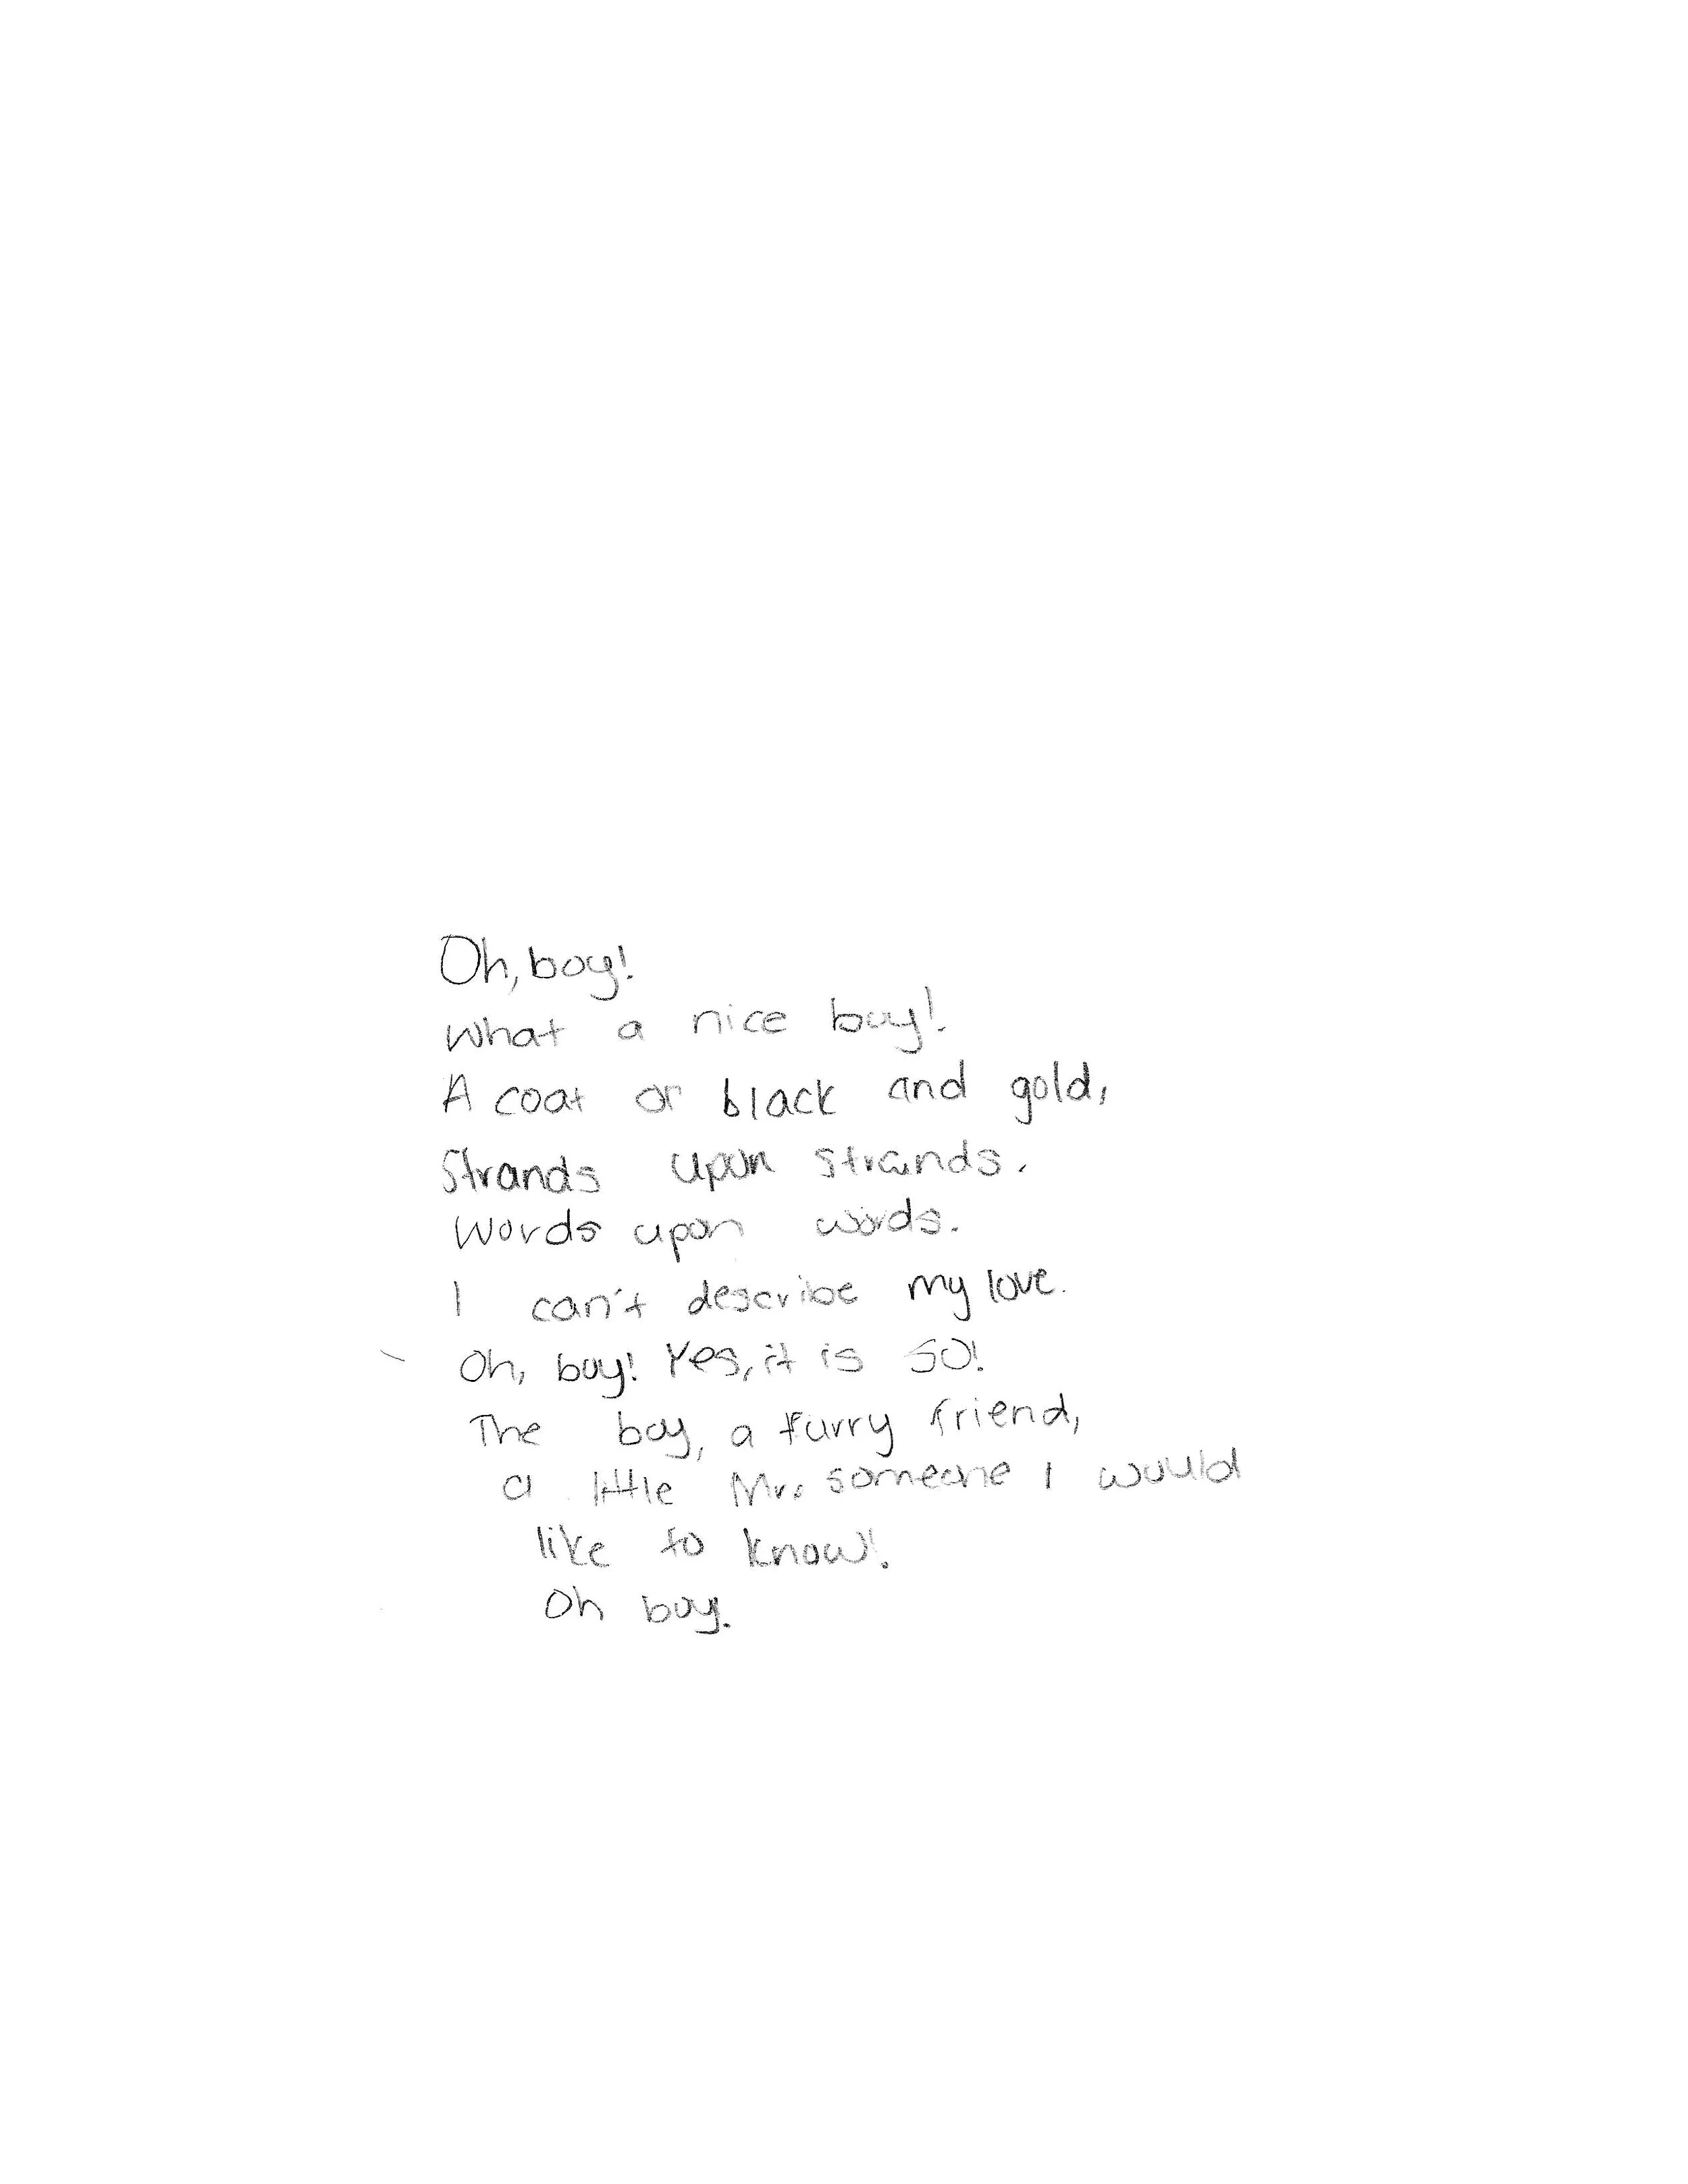 Oh, boy!
What a nice boy!
A coat of black and gold,
Strands upon strands.
Words upon words.
I can't describe my love.
Oh, boy! Yes, it is so!
The boy, a furry friend,
a little Mr. someone I would
like to know!
Oh boy.